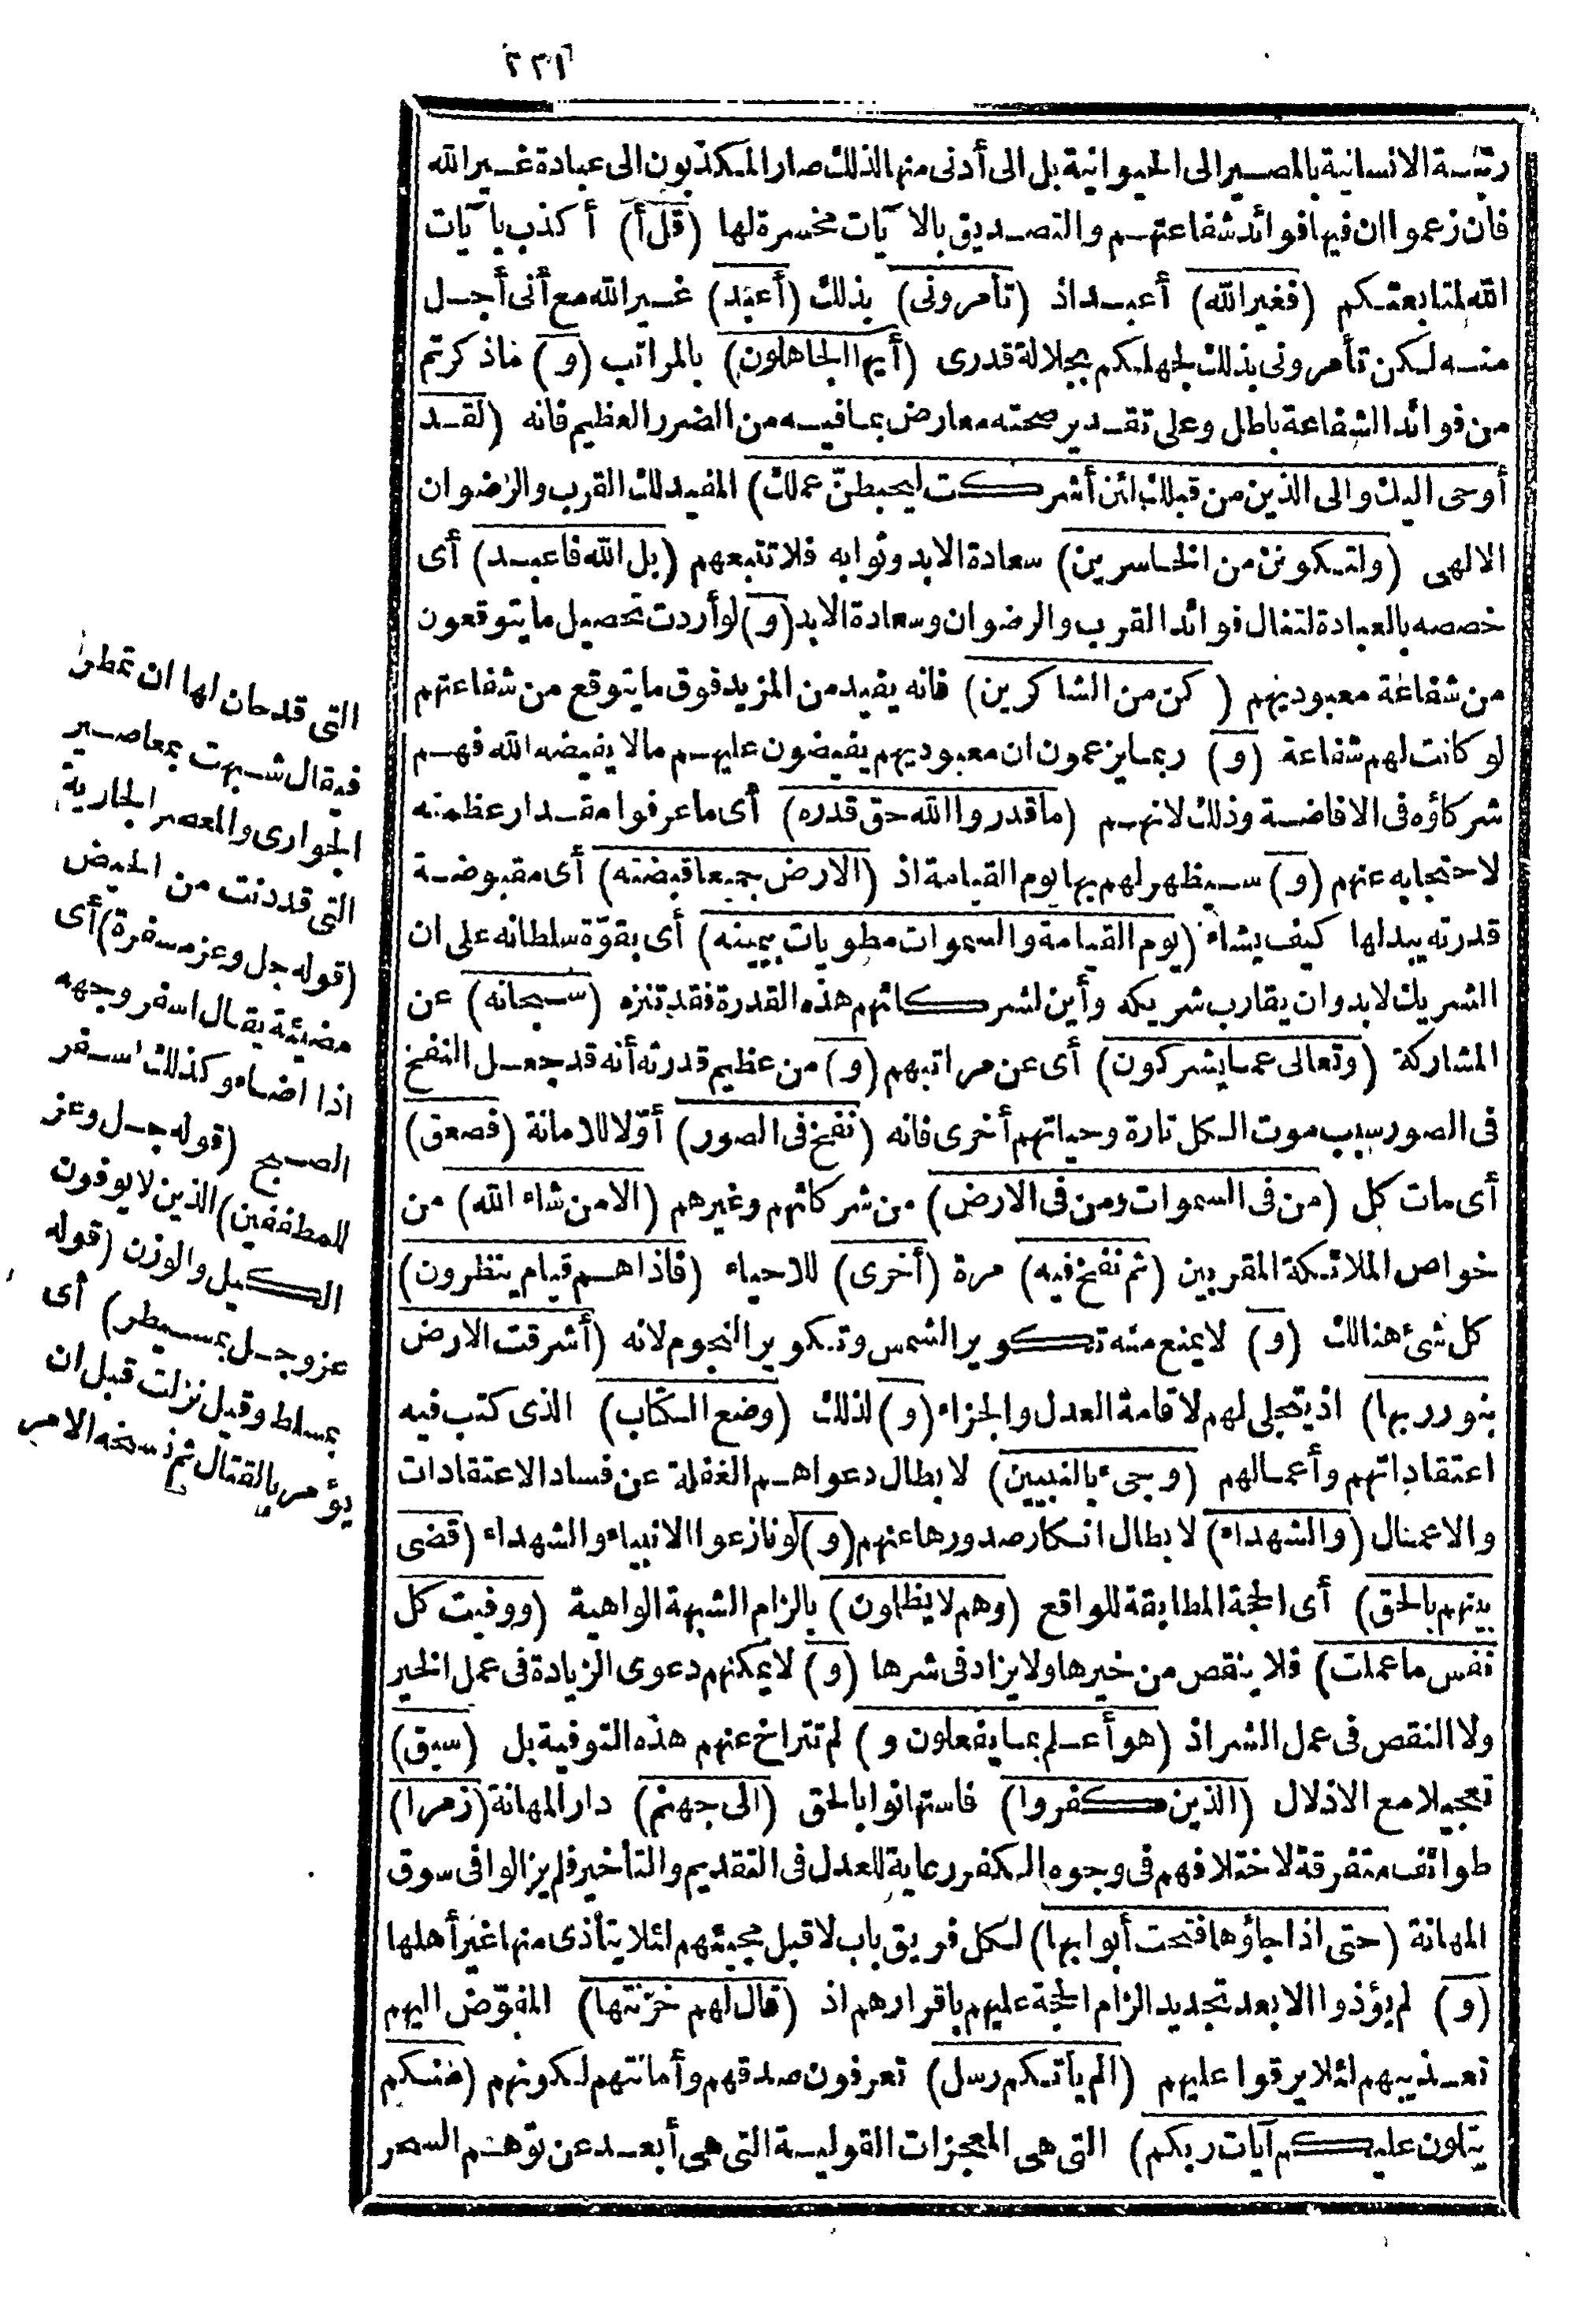 ٢٣٦
رتبة الانسانية بالمصير الى الحيوانية بل الى أدنى منها لذلك صار المكذبون الى عبادة غير الله
فان زعموا ان فيها فوائد شفاعتهم والتصديق بالآيات مخسرة لها (قل أ) أكذب بآيات
الله لمتابعتكم (فغير الله) أعبد اذ (تأمرونى) بذلك (أعبد) غير الله مع أنى أجل
منه لكن تأمرونى بذلك لجهلكم بجلالة قدرى (أيها الجاهلون) بالمراتب (و) ماذكرتم
من فوائد الشفاعة باطل وعلى تقدير صحته معارض بما فيه من الضرر العظيم فانه (لقد
أوحى اليك والى الذين من قبلك لئن أشركت ليحبطنّ عملك) المفيد لك القرب والرضوان
الالهى (ولتكونن من الخاسرين) سعادة الابد وثوابه فلا تتبعهم (بل الله فاعبد) أى
خصصه بالعبادة لتنال فوائد القرب والرضوان وسعادة الابد (و) لو أردت تحصيل ما يتوقعون
من شفاعة معبوديهم (كن من الشاكرين) فانه يفيد من المزيد فوق ما يتوقع من شفاعتهم
لو كانت لهم شفاعة (و) ربما يزعمون ان معبوديهم يفيضون عليهم ما لا يفيضه الله فهم
شركاؤه فى الافاضة وذلك لانهم (ما قدروا الله حق قدره) أى ما عرفوا مقدار عظمته
لاحتجابه عنهم (و) سيظهر لهم بها يوم القيامة اذ (الارض جميعا قبضته) أى مقبوضة
قدرته يبدلها كيف يشاء (يوم القيامة والسموات مطويات بيمينه) أى بقوّة سلطانه على ان
الشريك لابد وان يقارب شريكه وأين لشركائهم هذه القدرة فقد تنزه (سبحانه) عن
المشاركة (وتعالى عما يشركون) أى عن مراتبهم (و) من عظيم قدرته أنه قد جعل النفخ
فى الصور سبب موت الكل تارة وحياتهم أخرى فانه (نفخ فى الصور) أوّلا للاماتة (فصعق)
أى مات كل (من فى السموات ومن فى الارض) من شركائهم وغيرهم (الا من شاء الله) من
خواص الملائكة المقربين (ثم نفخ فيه) مرة (أخرى) للاحياء (فاذا هم قيام ينظرون)
كل شئ هنالك (و) لا يمنع منه تكوير الشمس وتكوير النجوم لانه (أشرقت الارض
بنور ربها) اذ يتجلى لهم لاقامة العدل والجزاء (و) لذلك (وضع الكتاب) الذى كتب فيه
اعتقاداتهم وأعمالهم (وجىء بالنبيين) لابطال دعواهم الغفلة عن فساد الاعتقادات
والاعمال (والشهداء) لابطال انكار صدورها عنهم (و) لو نازعوا الانبياء والشهداء (قضى
بينهم بالحق) أى الحجة المطابقة للواقع (وهم لا يظلمون) بالزام الشبهة الواهية (ووفيت كل
نفس ما عملت) فلا ينقص من خيرها ولا يزاد فى شرها (و) لا يمكنهم دعوى الزيادة فى عمل الخير
ولا النقص فى عمل الشر اذ (هو أعلم بما يفعلون و) لم تتراخ عنهم هذه التوفية بل (سيق)
تعجيلا مع الاذلال (الذين كفروا) فاستهانوا بالحق (الى جهنم) دار المهانة (زمرا)
طوائف متفرقة لاختلافهم فى وجوه الكفر رعاية للعدل فى التقديم والتأخير فلم يزالوا فى سوق
المهانة (حتى اذا جاؤها فتحت أبوابها) لكل فريق باب لا قبل مجيئهم لئلا يتأذى منها غير أهلها
(و) لم يؤذوا الا بعد تجديد الزام الحجة عليهم باقرارهم اذ (قال لهم خزنتها) المفوّض اليهم
تعذيبهم لئلا يرقوا عليهم (ألم يأتكم رسل) تعرفون صدقهم وأمانتهم لكونهم (منكم
يتلون عليكم آيات ربكم) التى هى المعجزات القولية التى هى أبعد عن توهم السحر
التى قد حان لها ان تمطر
فيقال شبهت بمعاصير
الجوارى والمعصر الجارية
التى قد دنت من الحيض
(قوله جل وعز مسفرة) أى
مضيئة يقال اسفر وجهه
اذا اضاء وكذلك اسفر
الصبح (قوله جل وعز
للمطففين) الذين لا يوفون
الكيل والوزن (قوله
عز وجل بمسيطر) أى
بمسلط وقيل نزلت قبل ان
يؤمر بالقتال ثم نسخه الامر